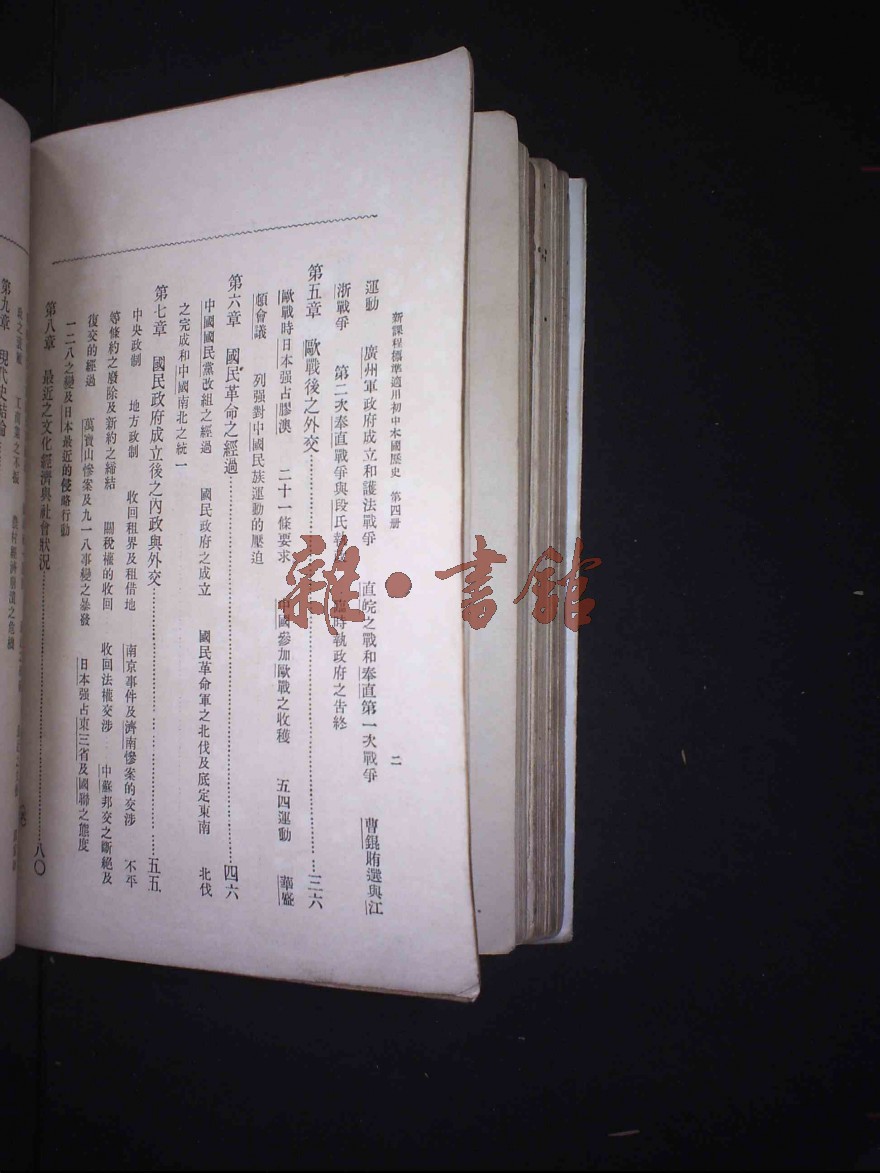 新課程標準適用初中本國歷史 第四册
二
運動 廣州軍政府成立和護法戰爭 直皖之戰和奉直第一次戰爭 曹錕賄選與江
浙戰爭 第二次奉直戰爭與段氏執政 臨時執政府之告終
第五章 歐戰後之外交……三六
歐戰時日本强占膠澳 二十一條要求 中國參加歐戰之收穫 五四運動 華盛
頓會議 列强對中國民族運動的壓迫
第六章 國民革命之經過……四六
中國國民黨改組之經過 國民政府之成立 國民革命軍之北伐及底定東南 北伐
之完成和中國南北之統一
第七章 國民政府成立後之內政與外交……五五
中央政制 地方政制 收回租界及租借地 南京事件及濟南慘案的交涉 不平
等條約之廢除及新約之締結 關稅權的收回 收回法權交涉 中蘇邦交之斷絕及
復交的經過 萬寶山慘案及九一八事變之暴發 日本强占東三省及國聯之態度
一二八之變及日本最近的侵略行動
第八章 最近之文化經濟與社會狀況……八〇
工商業之不振 農村經濟崩潰之危機
第九章 現代史結論
雜·書館